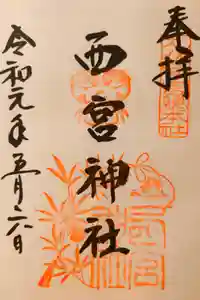 奉拝
西宮神社
令和元年五月六日